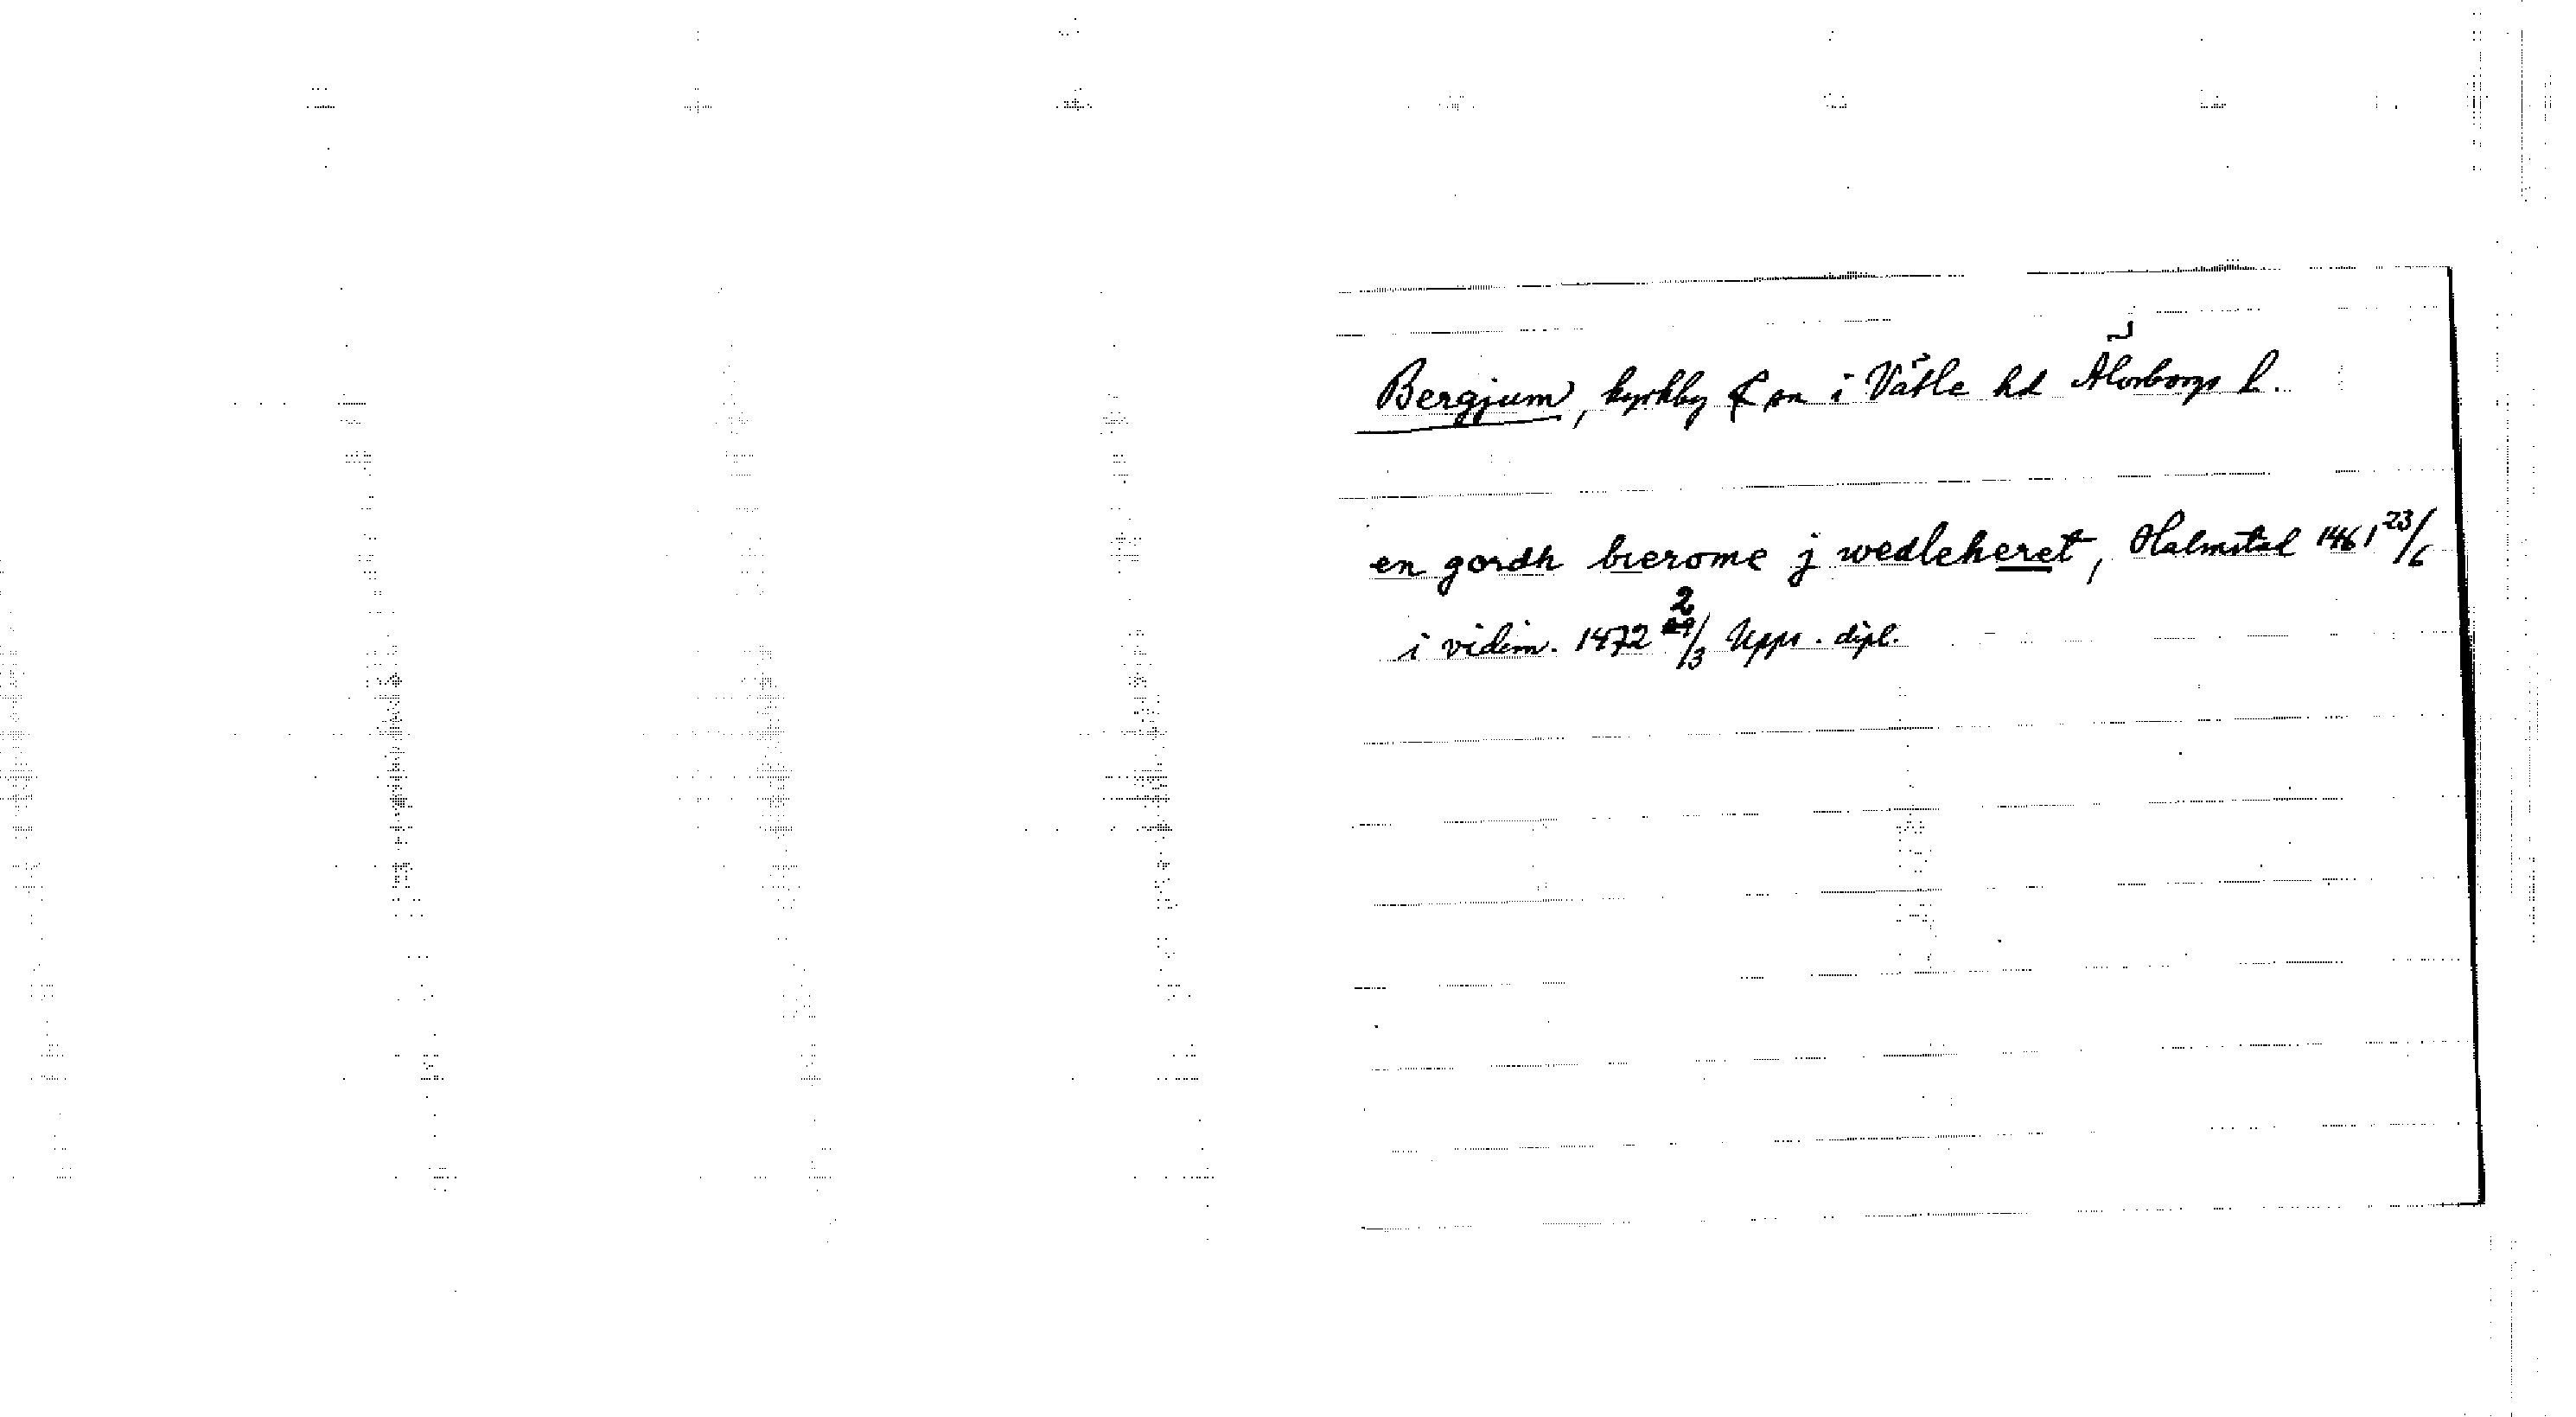 Bergjum, kyrkby & sn i Vätle hd Älvsborgs l.
en gordh bierome j wedleheret, Halmstad 1461 23/6
i vidim. 1472 2/3 Upps. dipl.